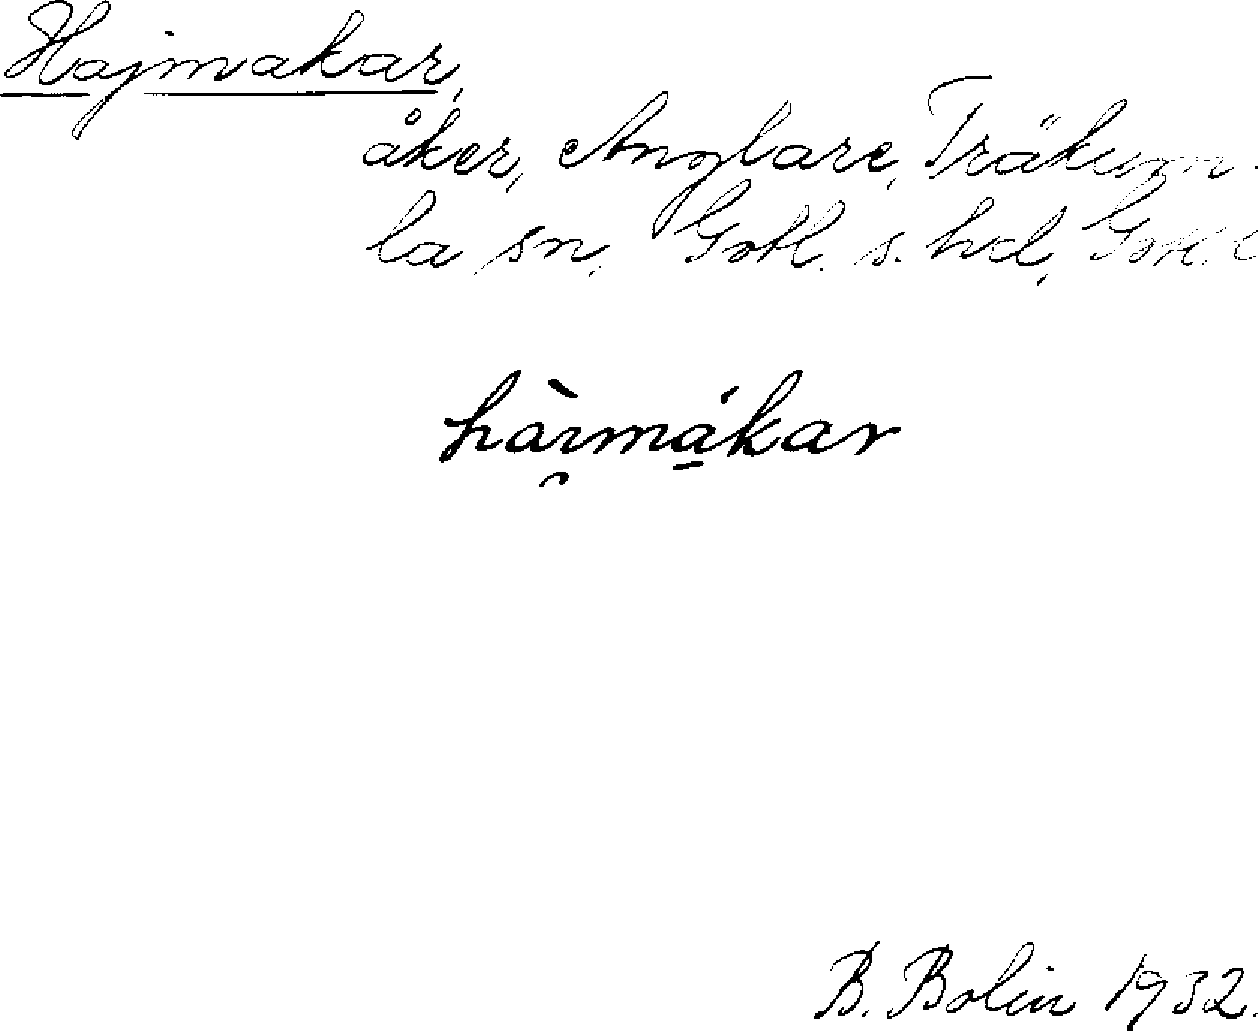 Hajmakar,
åker, Anglare, Träkum-
la sn, Gotl. s. hd, Gotl. l
hàımákar
B. Bolin 1932.